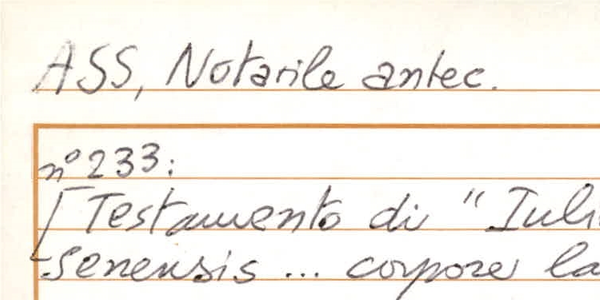 ASS, Notarile antec.
n° 233:
[Testamento di "Iuli
senensis ... corpore la